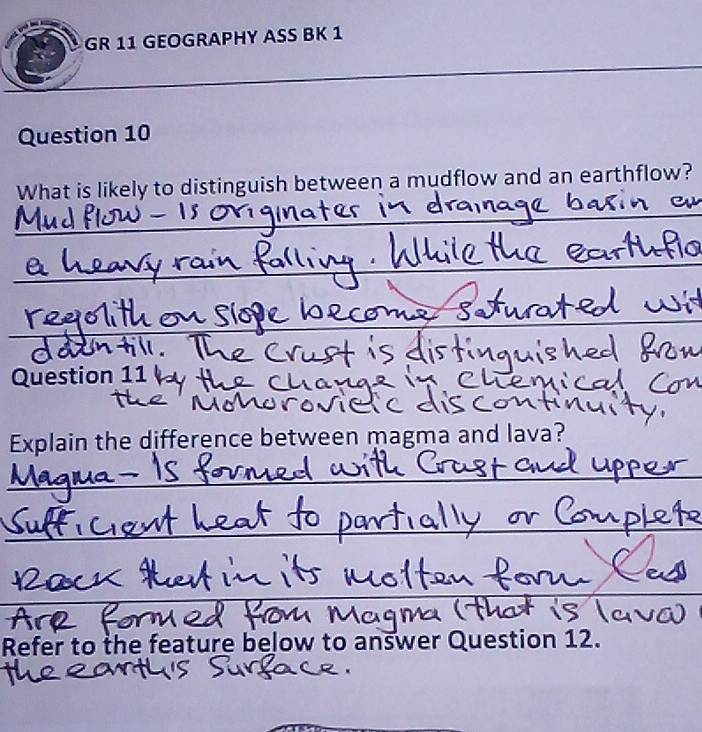 GR 11 GEOGRAPHY ASS BK 1
Question 10
What is likely to distinguish between a mudflow and an earthflow?
Mudflow - Is originates in drainage basin
a heavy rain falling. While the earthflo
regolith on slope become saturated wit
The crust is distinguished from
Question 11 by the change in chemical Con
the Mohorovicic discontinuity.
Explain the difference between magma and lava?
Magma - Is formed with Crust and upper
Sufficient heat to partially or Complete
Rock that in its molten form
Are formed from Magma (that is lava)
Refer to the feature below to answer Question 12.
the earth's Surface.